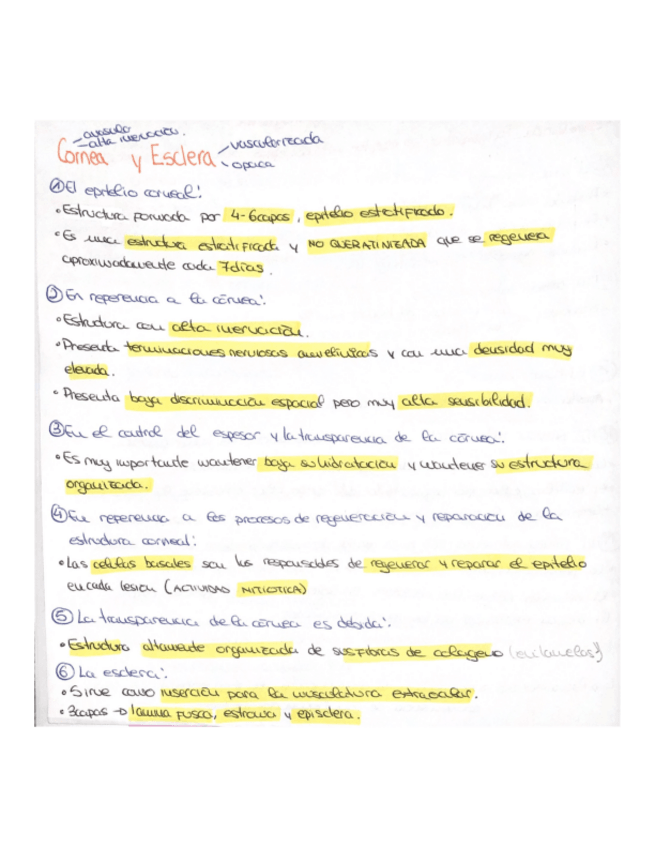 avascular
alta inervación.
Córnea y Esclera
vascularizada
opaca
① El epitelio corneal:
• Estructura formada por 4-6 capas, epitelio estratificado.
• Es una estructura estratificada y NO QUERATINIZADA que se regenera
aproximadamente cada 7 días.
② En referencia a la córnea:
• Estructura con alta inervación.
• Presenta terminaciones nerviosas amielínicas y con una densidad muy
elevada.
• Presenta baja discriminación espacial pero muy alta sensibilidad.
③ En el control del espesor y la transparencia de la córnea:
• Es muy importante mantener baja su hidratación y mantener su estructura
organizada.
④ En referencia a los procesos de regeneración y reparación de la
estructura corneal:
• Las células basales son las responsables de regenerar y reparar el epitelio
en cada lesión (ACTIVIDAD MITIOTICA)
⑤ La transparencia de la córnea es debida:
• Estructura altamente organizada de sus fibras de colágeno (en lamelas!!)
⑥ La esclera:
• Sirve como inserción para la musculatura extraocular.
• 3 capas → lámina fusca, estroma y episclera.